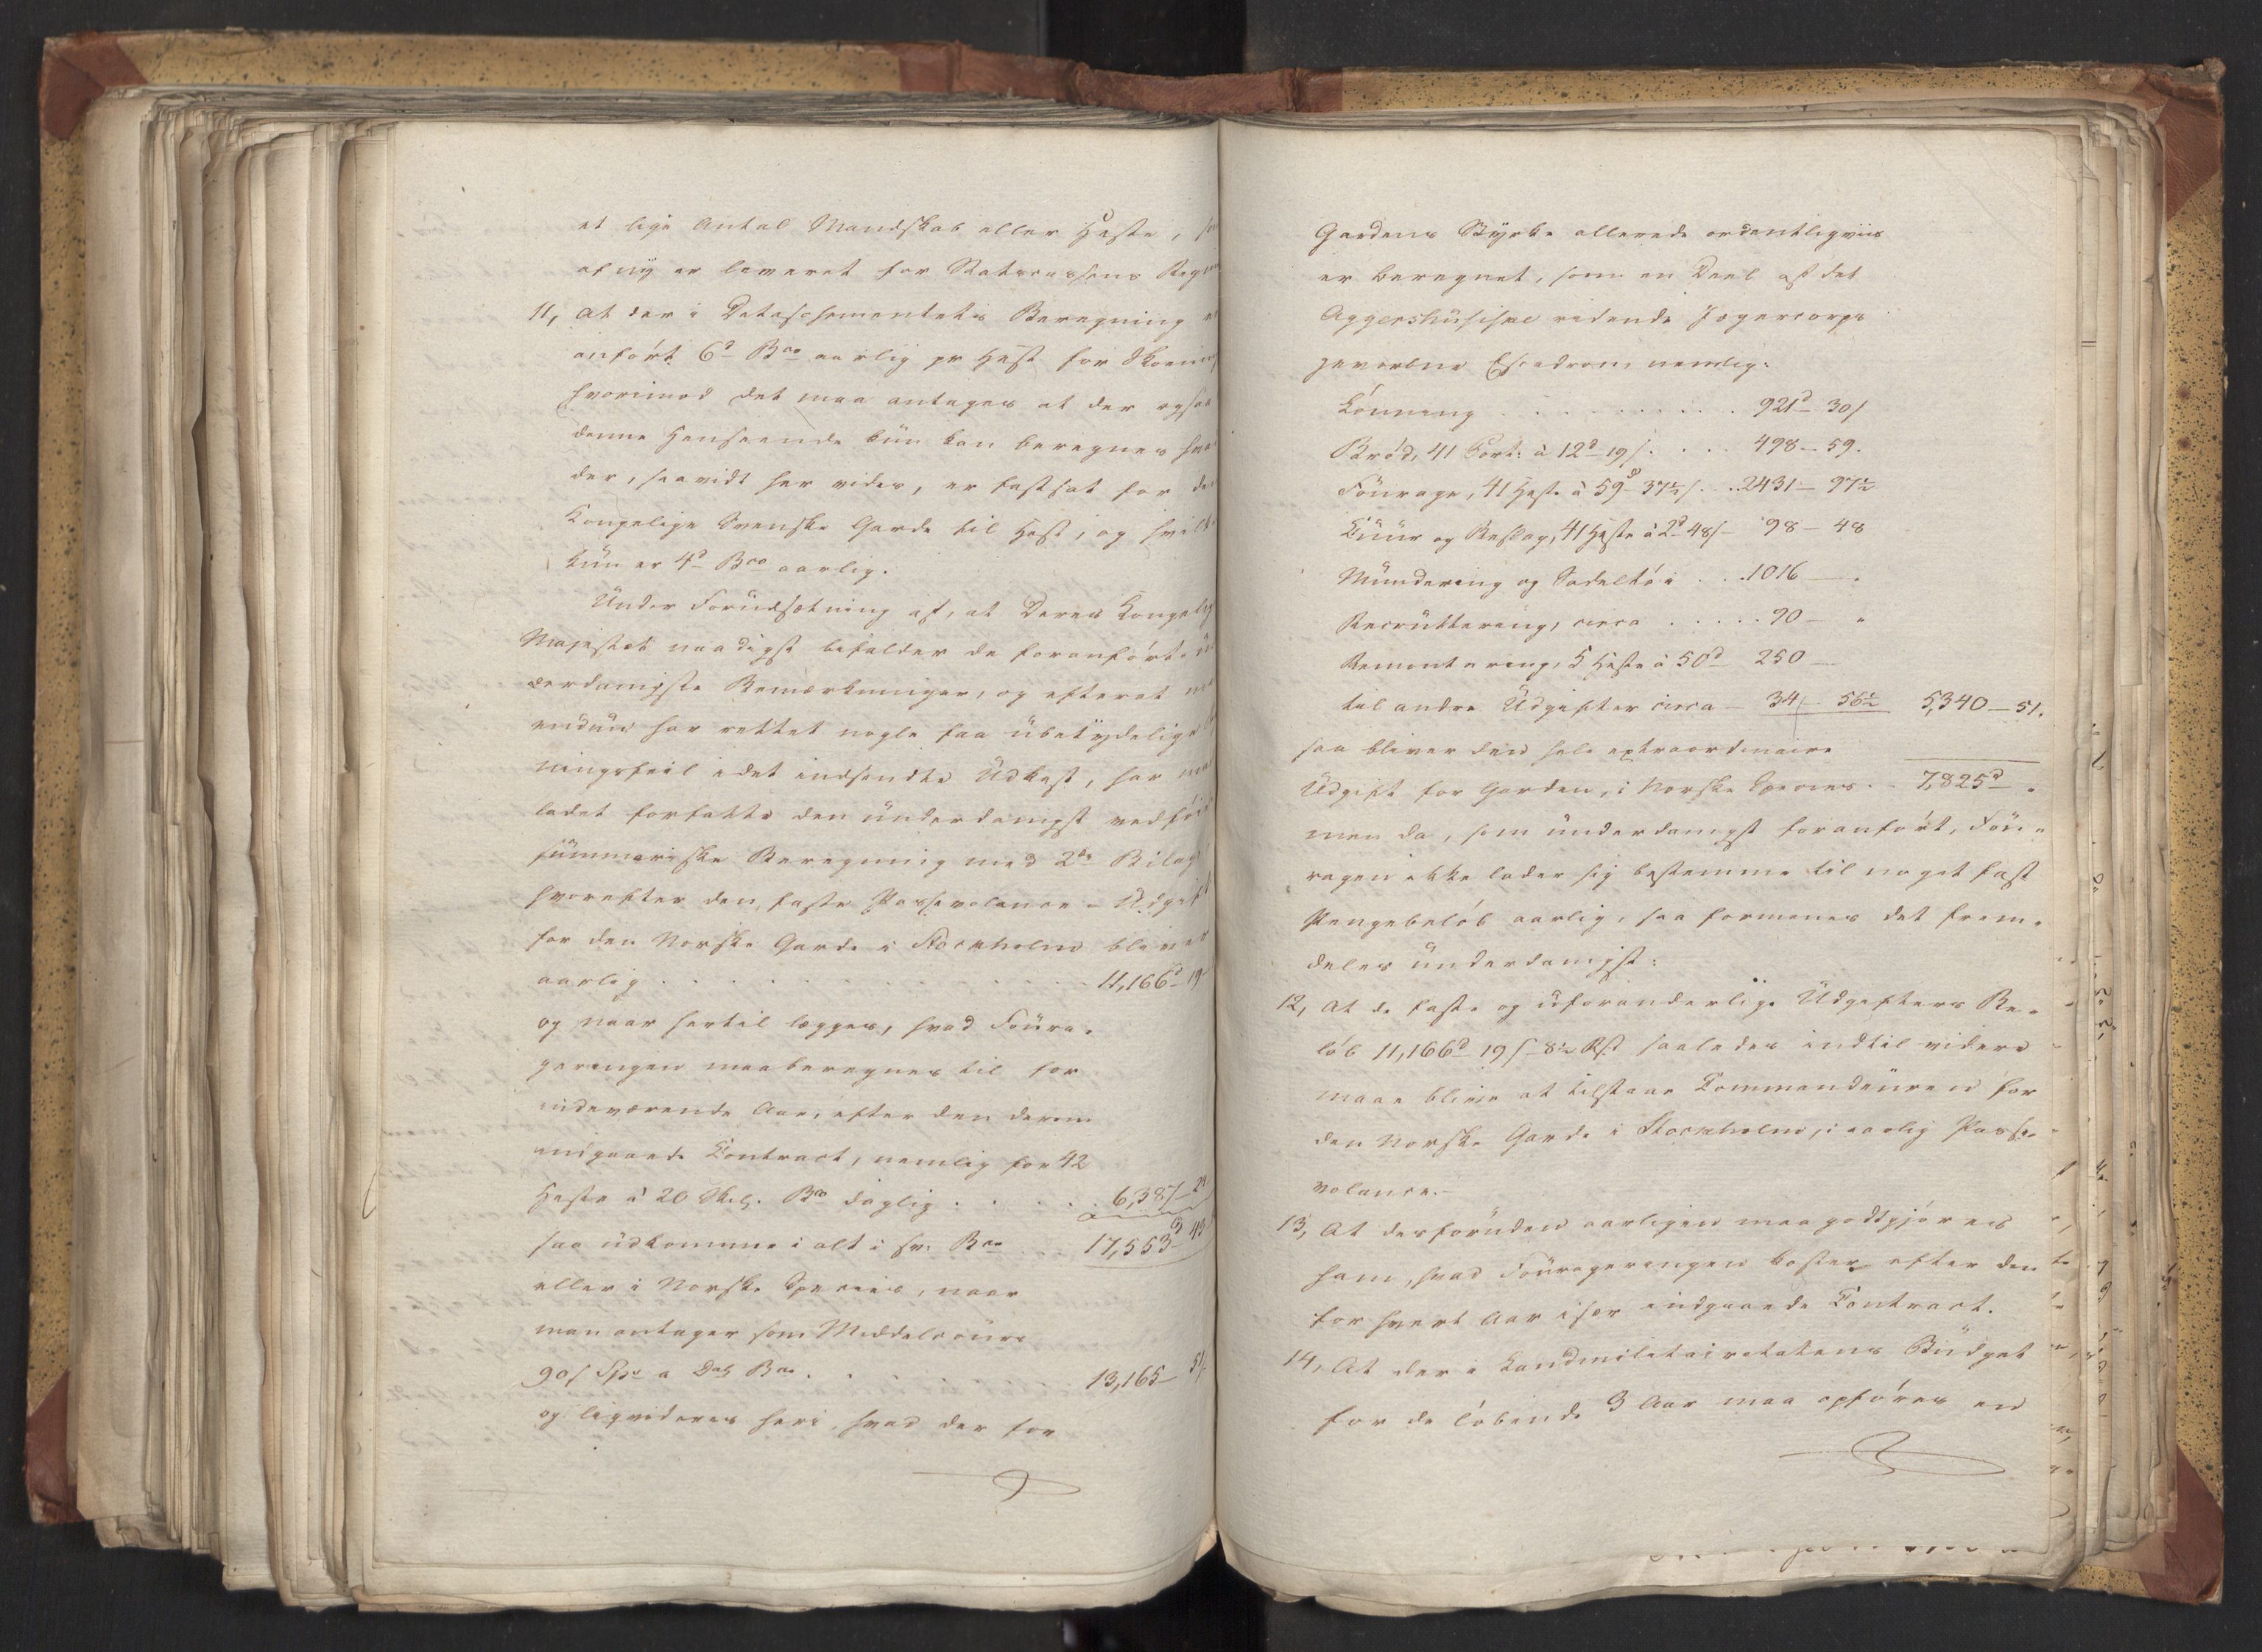 et lige Antal Mandskab eller Heste, som
af ny er leveret for Statscassens Regn
11, At der i Detaschementets Beregning er
anført 6d Bco aarlig pr Hest for Skoening
hvorimod det maa antages at der ogsaa
denne Henseende kun kan beregnes hva
der, saavidt her vides, er fastsat for de
Kongelige Svenske Garde til Hest, og hvilk
kun er 4d Bco aarlig.
Under Forudsætning af, at Deres Kongelig
Majestæt naadigst bifalder de foranførte un
derdanigste Bemærkninger, og efterat m
endnu har rettet nogle faa ubetydelige
ningsfeil i det indsendte Udkast, har ma
ladet forfatte den underdanigst vedføi
summariske Beregning med 2de Bilag
hvorefter den faste Passevolance-Udgift
for den Norske Garde i Stockholm bliver
aarlig . . . . . . . 11,166d 19
og naar hertil lægges, hvad Foura-
geringen maa beregnes til for
indeværende Aar, efter den derom
indgaaede Contract, nemlig for 42
Heste à 20 Sk. Bco daglig . . . . . 6,387-2
saa udkomme i alt i sv. Bco . . 17,553d
eller i Norske Species, naar
man antager som Middelcours
90/ Spe a Dal Bco . . . . 13,165- 51
og liqvideres heri, hvad der for
Gardens Styrke allerede ordentligviis
er beregnet, som en Deel af det
Aggershusiske ridende Jægercorps
gevorbne Escadron, nemlig:
Lønning . . . . . . . . 921d 30/
Brød, 41 Port: à 12d 19/ . . . 498-59.
Fourage, 41 Heste à 59d 37½/ . . 2431-97½
Cuur og Beslag, 41 Heste à 2d 48/- 98-48
Mundering og Sadeltøi . . . 1016 — "
Recruttering, circa . . . . . 90 — "
Remontering, 5 Heste à 50d 250 —
til andre Udgifter circa - 34/- 56½ 5,340-51.
saa bliver den hele extraordinaire
Udgift for Garden, i Norske Species. - 7,825d "
men da, som underdanigst foranført, Fou-
ragen ikke lader sig bestemme til noget fast
Pengebeløb aarlig, saa formenes det frem-
deles underdanigst:
12, At de faste og uforanderlige Udgifters Be-
løb 11,166d 19/- 8½ Rst saaledes indtil videre
maae blive at tilstaae Commandeuren for
den Norske Garde i Stockholm, i aarlig Passe-
volance.-
13, At desforuden aarligen maa godtgjøres
ham, hvad Fourageringen koster efter den
for hvert Aar især indgaaede Contract.
14, At der i Landmilitairetatens Budget
for de løbende 3 Aar maa opføres en